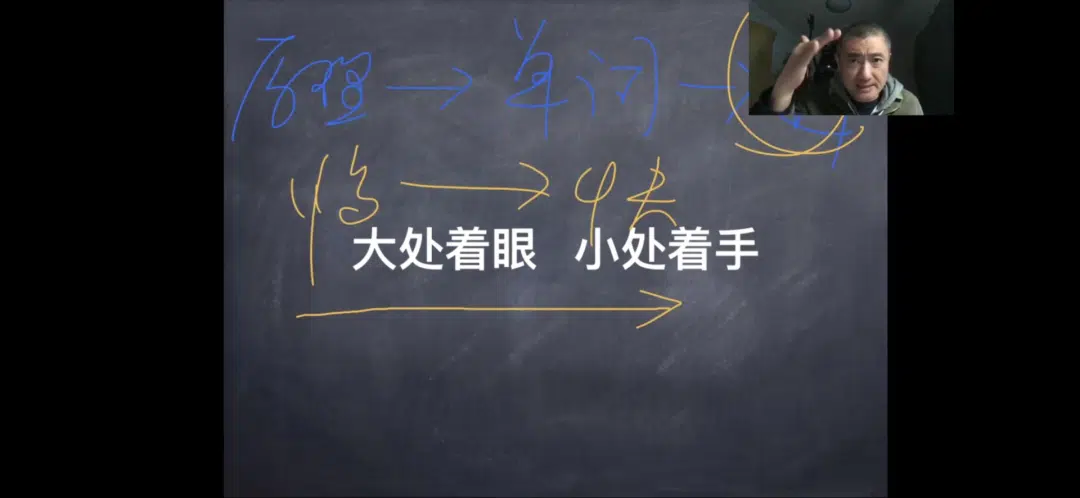 原理 → 单词 →
慢 → 快
大处着眼 小处着手